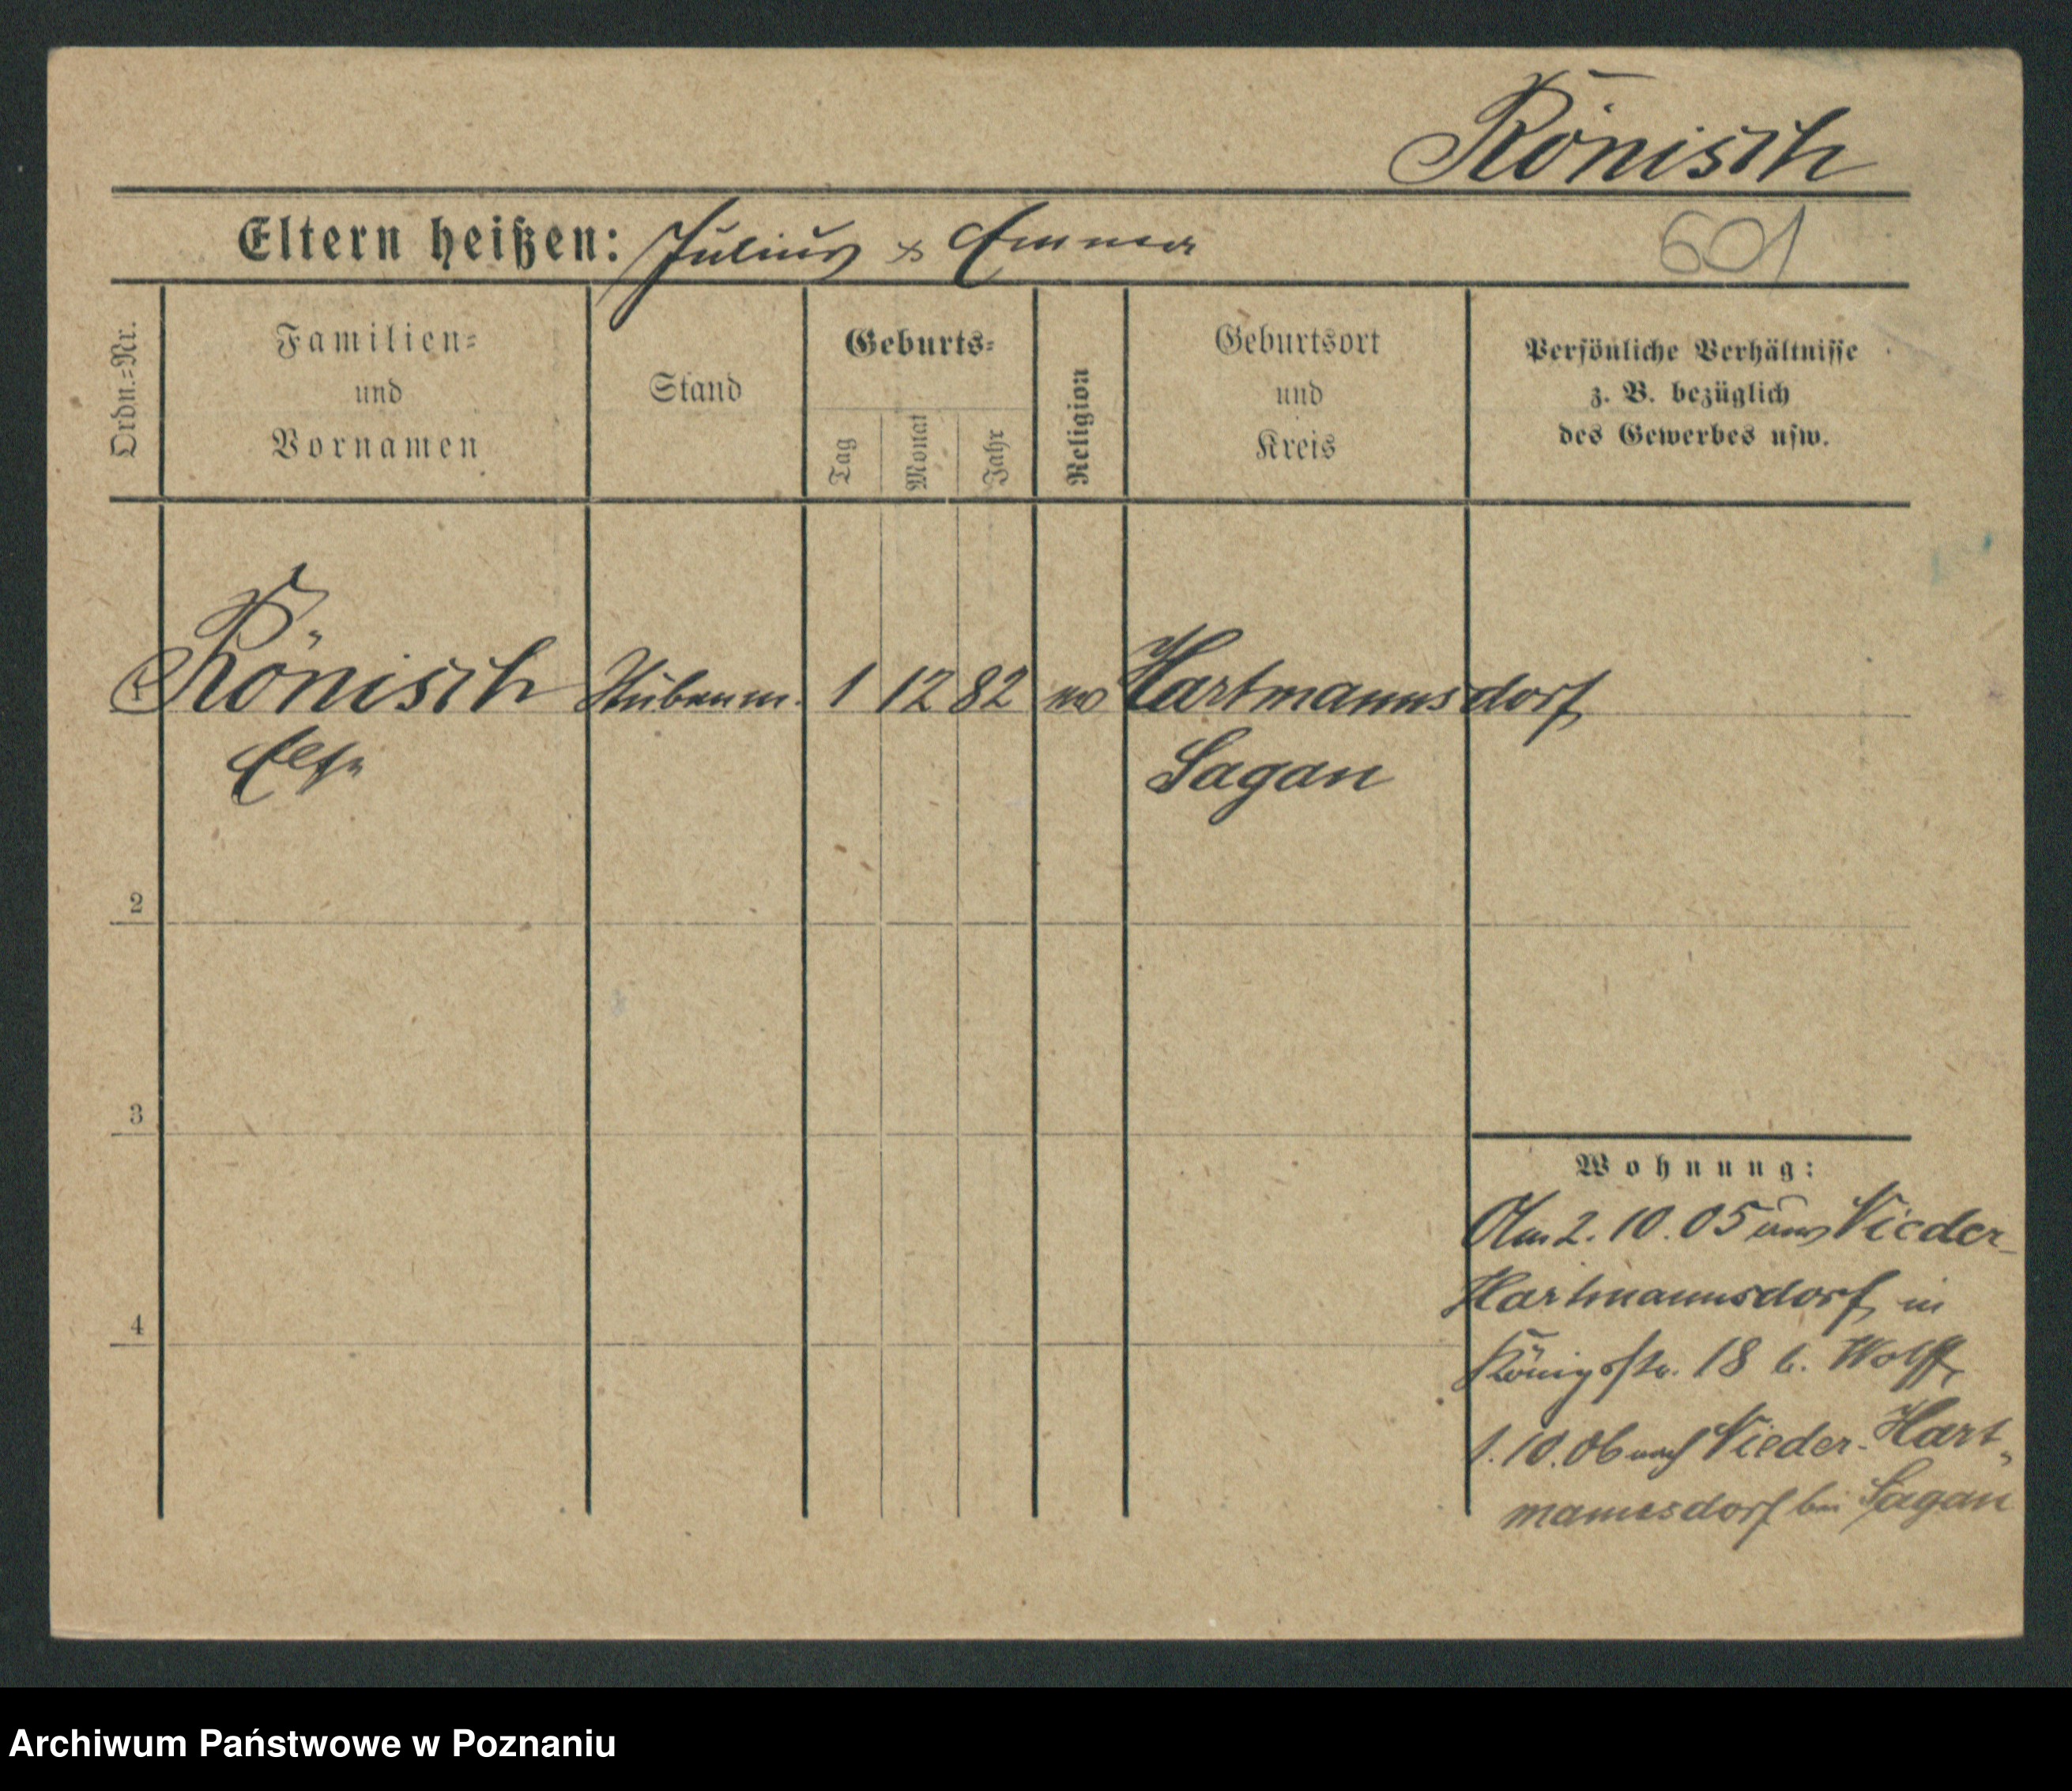 Rönisch
Eltern heißen: Julius & Emma
601
Ordn.=Nr.
Familien=
und
Vornamen
Stand
Geburts=
Tag
Monat
Jahr
Religion
Geburtsort
und
Kreis
Persönliche Verhältnisse
z. B. bezüglich
des Gewerbes usw.
1 Rönisch Stubenm. 1 12 82 ev Hartmannsdorf
Else Sagan
2
3
4
Wohnung:
Am 2. 10. 05 aus Nieder-
Hartmannsdorf in
Königstr. 18 b. Wolff
1. 10. 06 nach Nieder-Hart-
mannsdorf bei Sagan
Archiwum Państwowe w Poznaniu